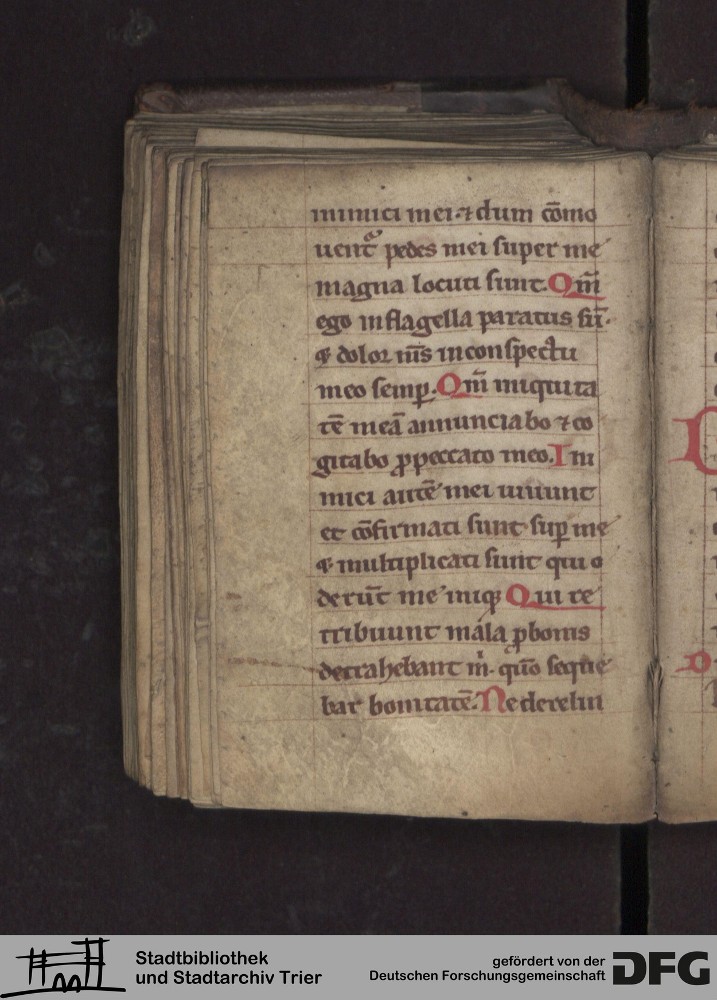 inimici mei ⁊ dum cōmo
uent᷑ pedes mei super me
magna locuti sunt. Qm̅
ego in flagella paratus sū.
⁊ dolor m̅s in conspectu
meo semꝑ. Qm̅ iniquita
tē meā annunciabo ⁊ co
gitabo ꝓ peccato meo. Ini
mici autē mei uiuunt
et cōfirmati sunt suꝑ me
⁊ multiplicati sunt qui o
derūt me iniqꝫ Qui re
tribuunt mala ꝓ bonis
detrahebant m̅ quō seque
bar bonitatē. Ne derelin
Stadtbibliothek
und Stadtarchiv Trier
gefördert von der
Deutschen Forschungsgemeinschaft
DFG